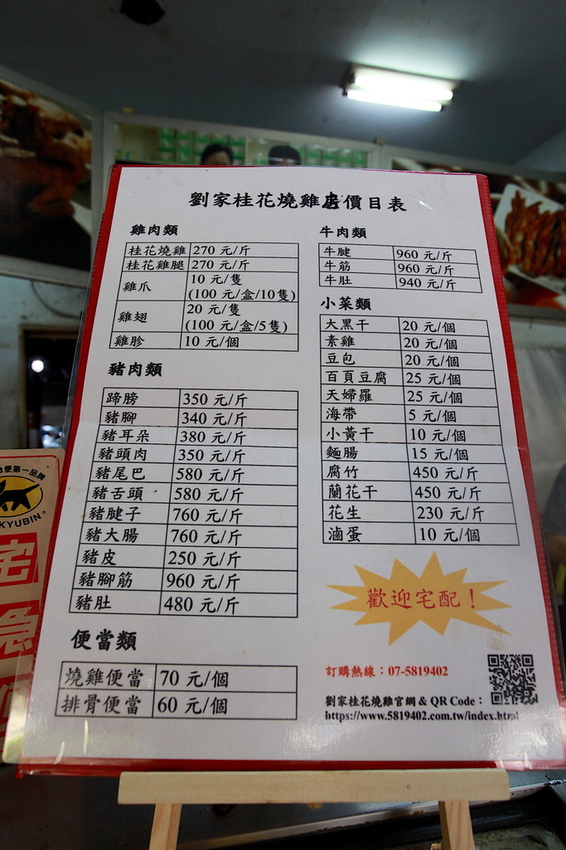 劉家桂花燒雞店價目表
雞肉類
桂花燒雞 270 元/斤
桂花雞腿 270 元/斤
雞爪 10 元/隻
(100 元/盒/10隻)
雞翅 20 元/隻
(100 元/盒/5隻)
雞胗 10 元/個
豬肉類
蹄膀 350 元/斤
豬腳 340 元/斤
豬耳朵 380 元/斤
豬頭肉 350 元/斤
豬尾巴 580 元/斤
豬舌頭 580 元/斤
豬腱子 760 元/斤
豬大腸 760 元/斤
豬皮 250 元/斤
豬腳筋 960 元/斤
豬肚 480 元/斤
便當類
燒雞便當 70 元/個
排骨便當 60 元/個
牛肉類
牛腱 960 元/斤
牛筋 960 元/斤
牛肚 940 元/斤
小菜類
大黑干 20 元/個
素雞 20 元/個
豆包 20 元/個
百頁豆腐 25 元/個
天婦羅 25 元/個
海帶 5 元/個
小黃干 10 元/個
麵腸 15 元/個
腐竹 450 元/斤
蘭花干 450 元/斤
花生 230 元/斤
滷蛋 10 元/個
歡迎宅配！
訂購熱線：07-5819402
劉家桂花燒雞官網 & QR Code：
https://www.5819402.com.tw/index.html
急便第一品牌
KYUBIN
宅
急